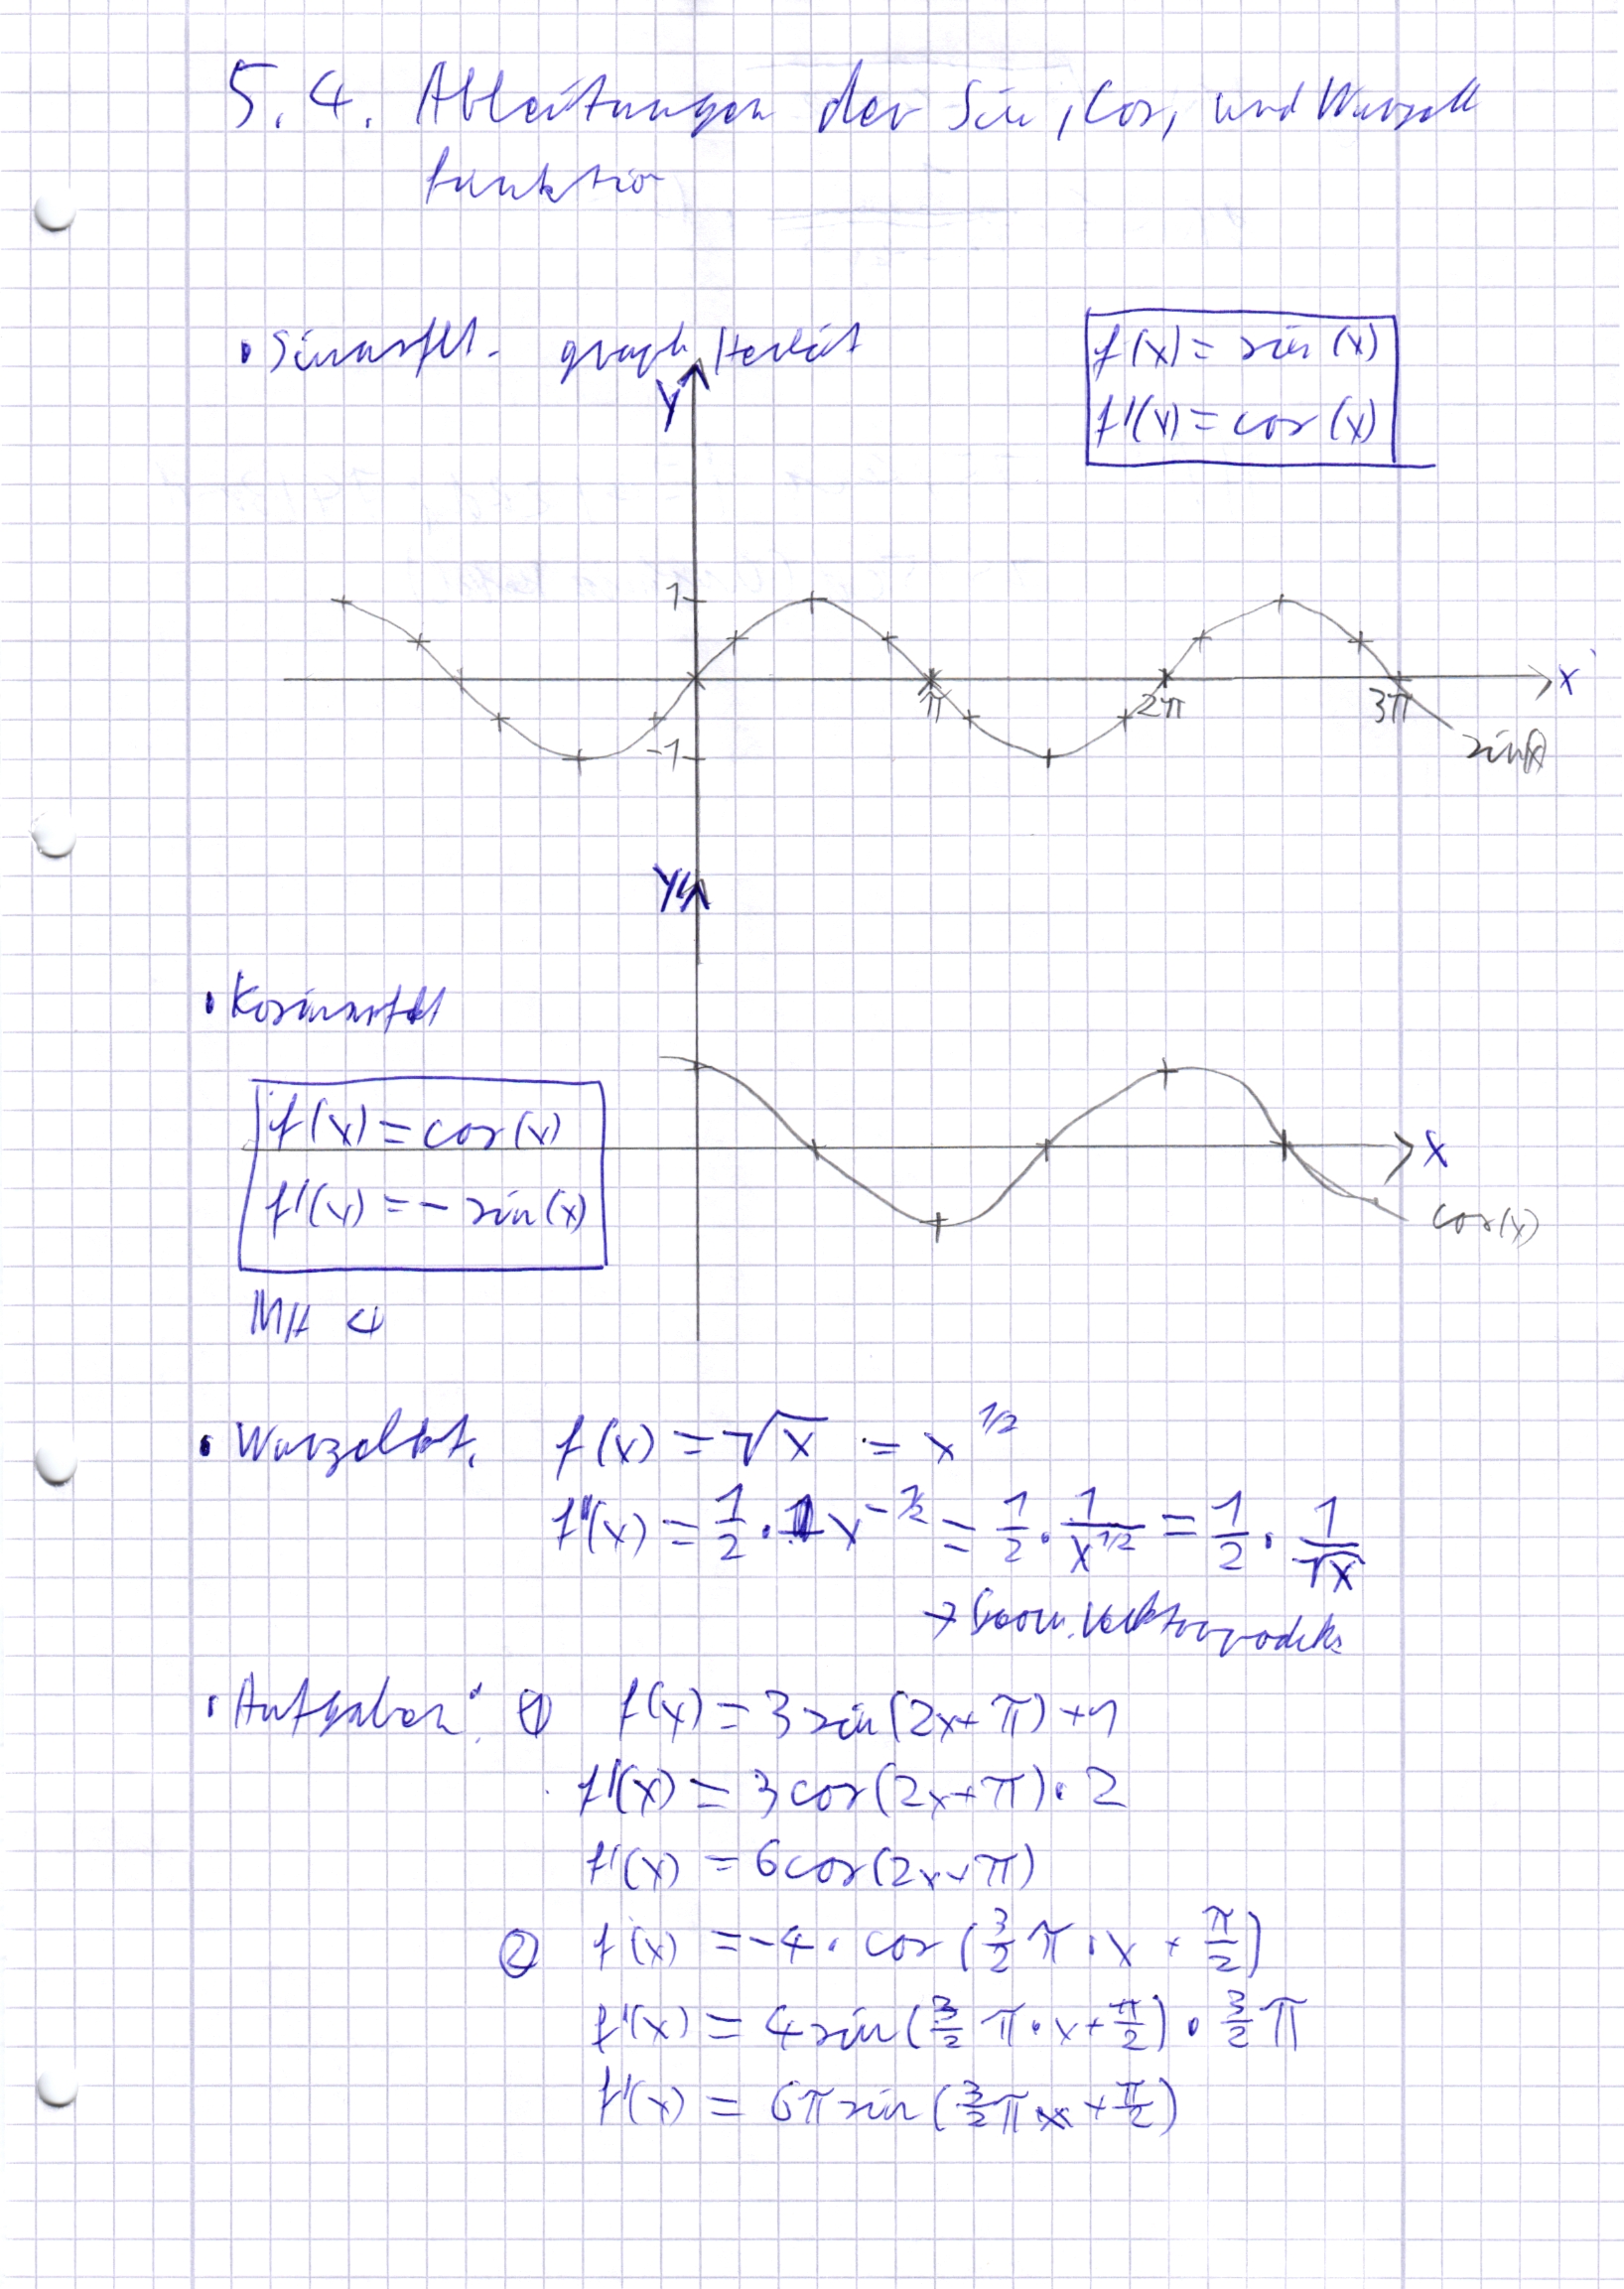 5.4. Ableitungen der Sin, Cos, und Wurzel
funktion
• Sinusfkt. graph Herleit
f(x) = sin(x)
f'(x) = cos(x)
Y
1
-1
π
2π
3π
X
sin(x)
Y
• Kosinusfkt
f(x) = cos(x)
f'(x) = - sin(x)
X
cos(x)
• Wurzelfkt. f(x) = √x = x^1/2
f'(x) = 1/2 · x^-1/2 = 1/2 · 1/x^1/2 = 1/2 · 1/√x
→ Geom. Vektorprodukt
• Aufgaben: ① f(x) = 3 sin(2x+π)+1
f'(x) = 3 cos(2x+π)·2
f'(x) = 6 cos(2x+π)
② f(x) = -4 · cos(3/2 π · x + π/2)
f'(x) = 4 sin(3/2 π · x + π/2) · 3/2 π
f'(x) = 6π sin(3/2 π x + π/2)